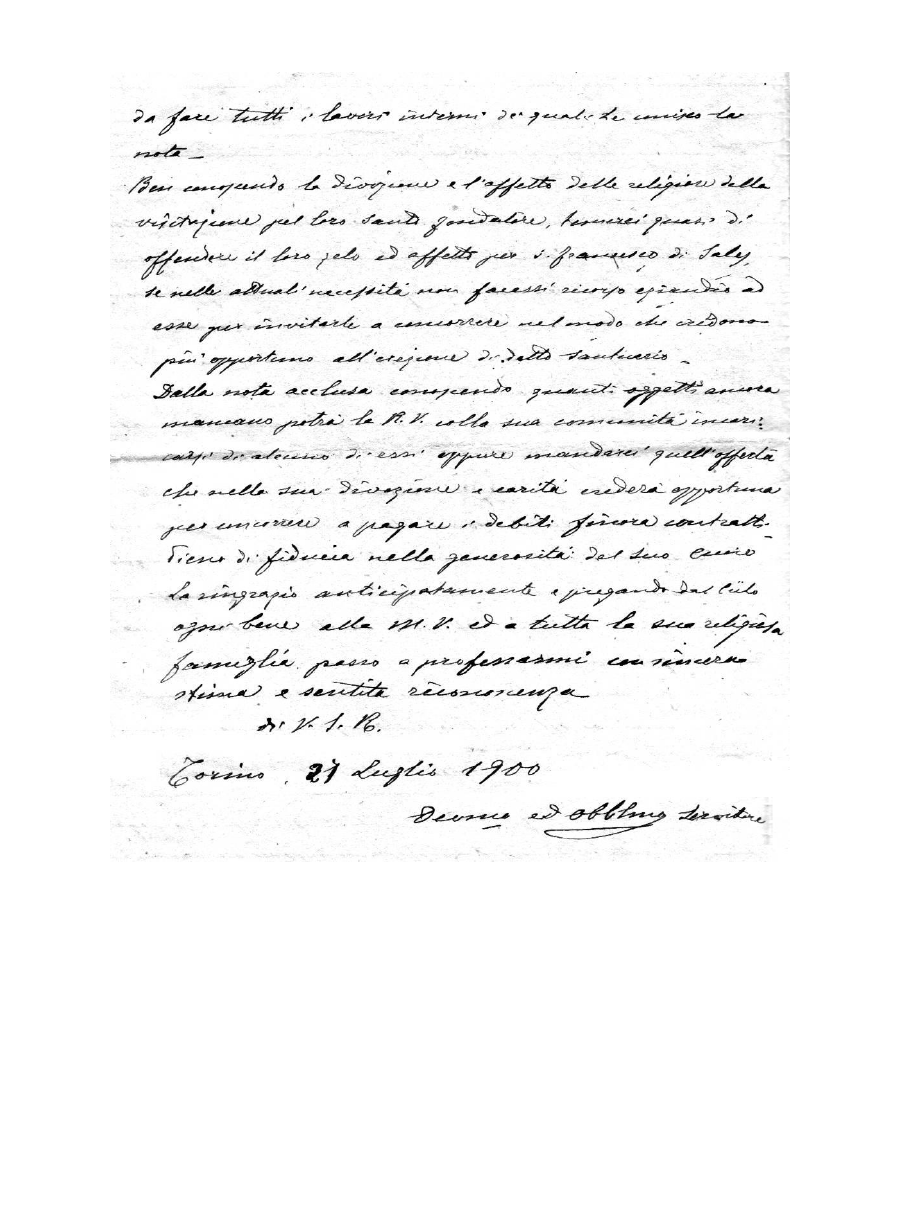 da fare tutti i lavori interni dei quali Le unisco la
nota –
Ben conoscendo la divozione e l'affetto delle religiose della
visitazione pel loro santo fondatore, temerei quasi di
offendere il loro zelo ed affetto per S. Francesco di Sales,
se nelle attuali necessità non facessi ricorso eziandio ad
esse per invitarle a concorrere nel modo che credono
più opportuno all'erezione di detto santuario –
Dalla nota acclusa conoscendo quanti oggetti ancora
mancano potrà la R. V. colla sua comunità incari:
carsi di alcuno di essi oppure mandarci quell'offerta
che nella sua divozione e carità crederà opportuna
per concorrere a pagare i debiti finora contratti.
Pieno di fiducia nella generosità del suo cuore
La ringrazio anticipatamente e pregando dal Cielo
ogni bene alla M. V. ed a tutta la sua religiosa
famiglia passo a professarmi con sincera
stima e sentita riconoscenza
di V. S. R.
Torino, 21 Luglio 1900
Devmo ed Obblmo Servitore